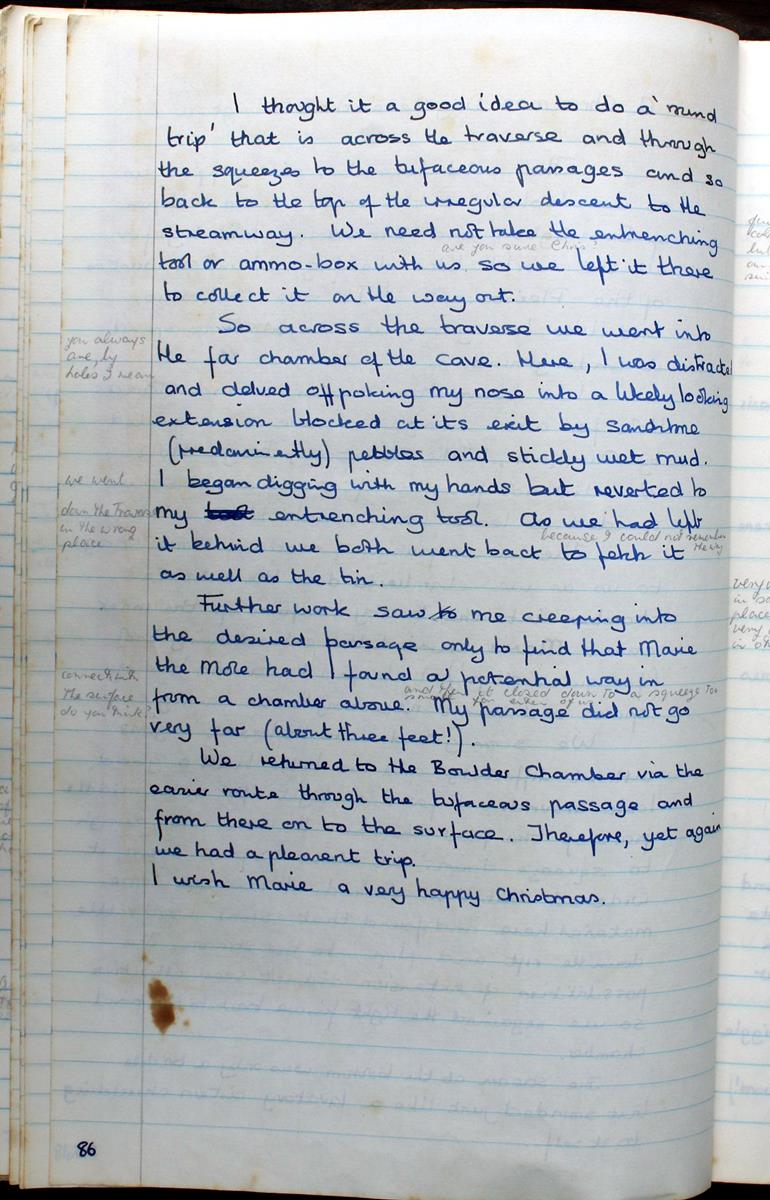 I thought it a good idea to do a 'round
trip' that is across the traverse and through
the squeezes to the tufaceous passages and so
back to the top of the irregular descent to the
streamway. We need not take the entrenching
are you sure Chris?
tool or ammo-box with us so we left it there
to collect it on the way out.
So across the traverse we went into
you always
are, by
holes I mean
the far chamber of the cave. Here, I was distracted
and delved off poking my nose into a likely looking
extension blocked at its exit by sandstone
(predominently) pebbles and stickly wet mud.
we went
down the Traverse
in the wrong
place
I began digging with my hands but reverted to
my tool entrenching tool. As we had left
because I could not remember
the way
it behind we both went back to fetch it
as well as the tin.
Further work saw to me creeping into
the desired passage only to find that Marie
the Mole had found a potential way in
connect with
the surface
do you think?
and then it closed down to a squeeze too
small for either of us
from a chamber above. My passage did not go
very far (about three feet!).
We returned to the Boulder Chamber via the
easier route through the tufaceous passage and
from there on to the surface. Therefore, yet again
we had a pleasent trip.
I wish Marie a very happy Christmas.
86